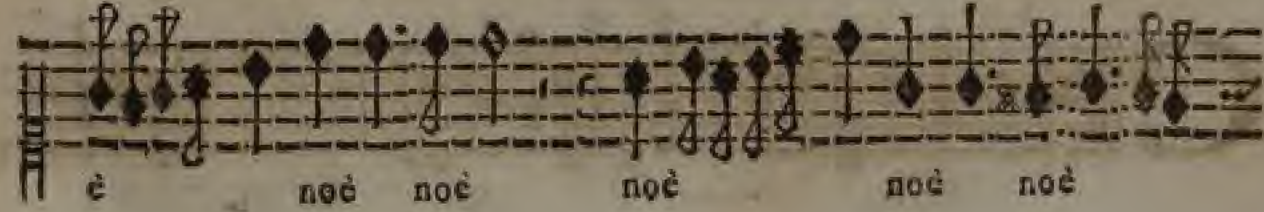 è noè noè noè noè noè